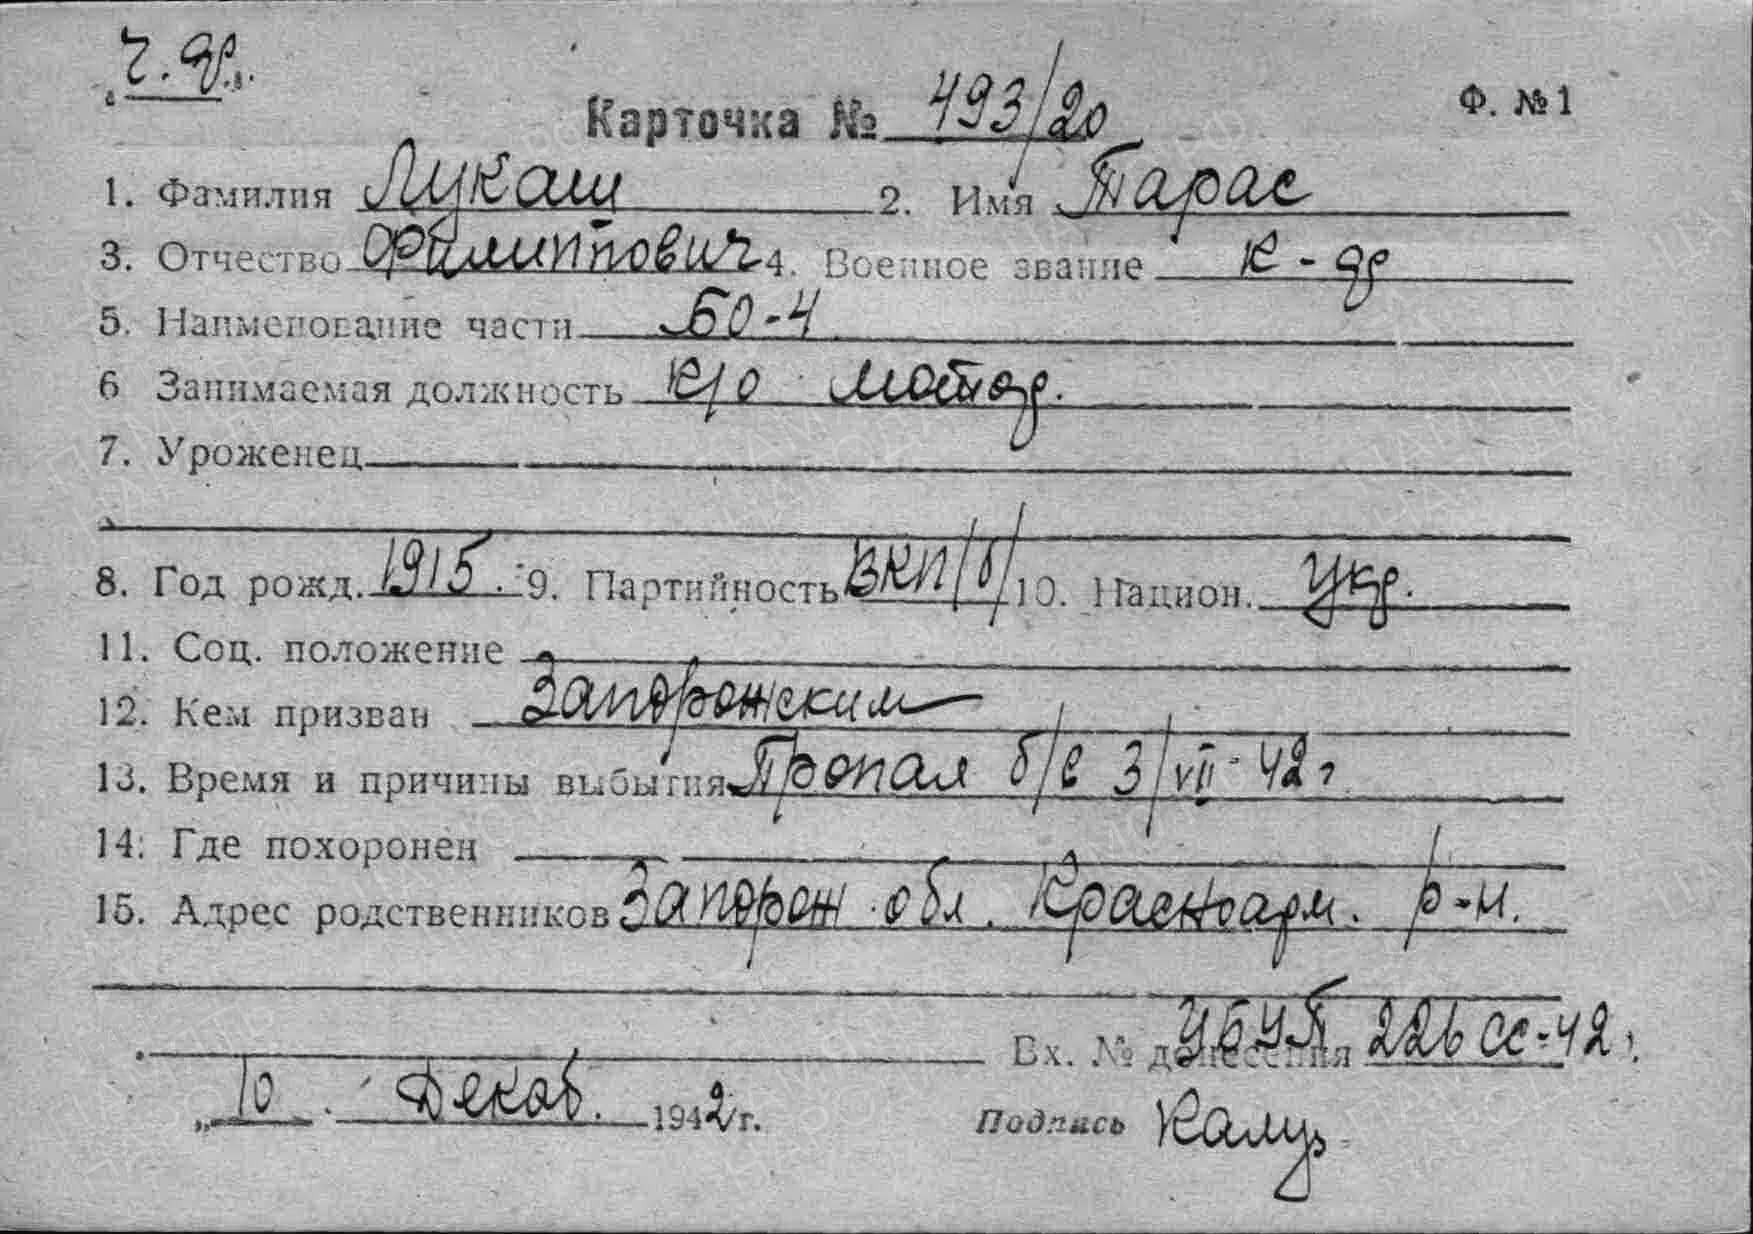 Ч. Ф.
Карточка № 493/20 Ф. № 1
1. Фамилия Лукаш 2. Имя Тарас
3. Отчество Филиппович 4. Военное звание к-др
5. Наименование части БО-4
6 Занимаемая должность к/о мотор.
7. Уроженец
8. Год рожд. 1915. 9. Партийность ВКП/б/ 10. Национ. Укр.
11. Соц. положение
12. Кем призван Запорожским
13. Время и причины выбытия Пропал б/в 3/VII-42 г
14. Где похоронен
15. Адрес родственников Запорож. обл. Красноарм. р-н.
Вх. № донесения УБУП 226 сс-42 г.
„10 . Декаб. 1942 г. Подпись